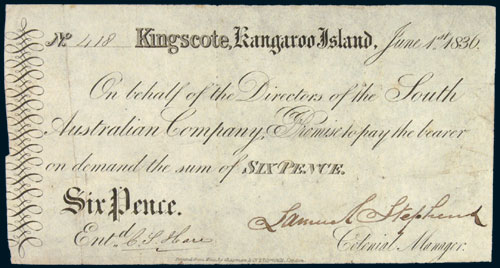 No 418 Kingscote, Kangaroo Island, June 1st 1836.
On behalf of the Directors of the South
Australian Company, I Promise to pay the bearer
on demand the sum of SIXPENCE.
Six Pence.
Samuel Stephens
Entd C S Hare Colonial Manager.